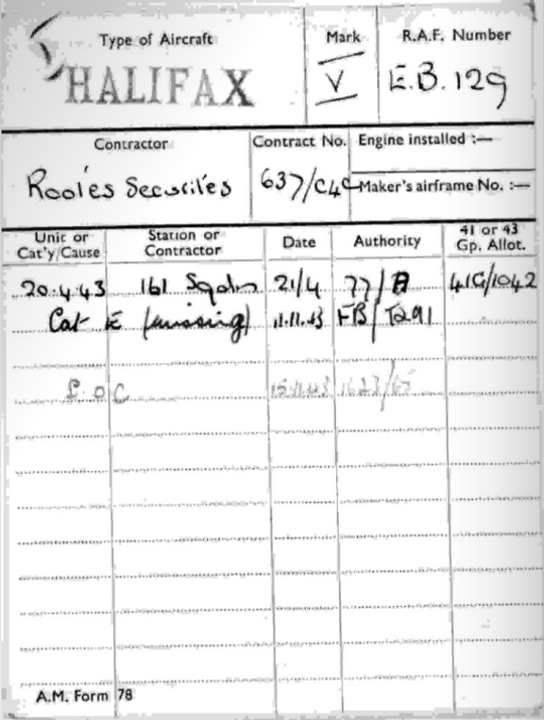 Type of Aircraft
HALIFAX
Mark
V
R.A.F. Number
E.B.129
Contractor
Rootes Securities
Contract No.
637/C4C
Engine installed :—
Maker's airframe No. :—
Unit or Cat'y/Cause
Station or Contractor
Date
Authority
41 or 43 Gp. Allot.
20.4.43 161 Sqdn 21/4 77/B 41G/1042
Cat E (missing) 11.11.43 FB/T291
S.O.C
A.M. Form 78